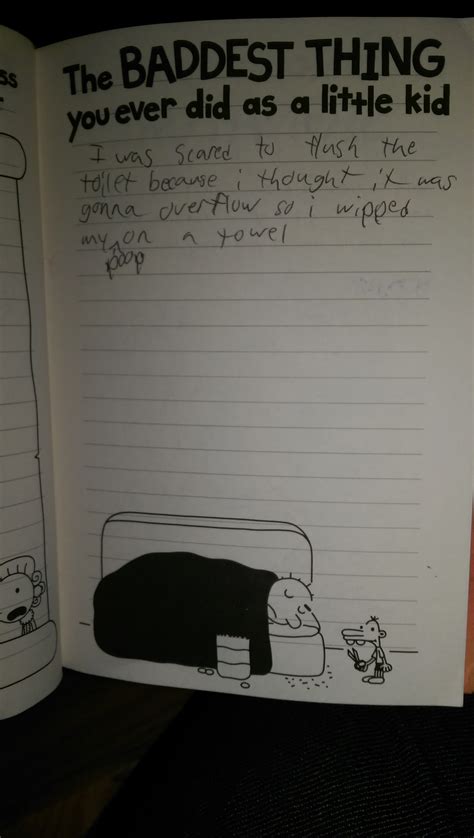 ss
The BADDEST THING
you ever did as a little kid
I was scared to flush the
toilet because i thought it was
gonna overflow so i wipped
my poop on a towel